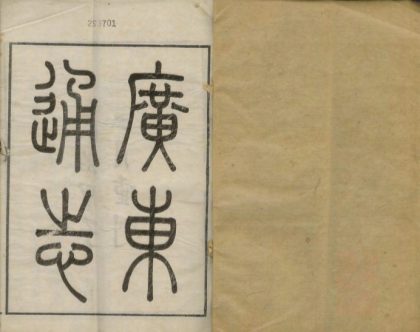 廣東
通志